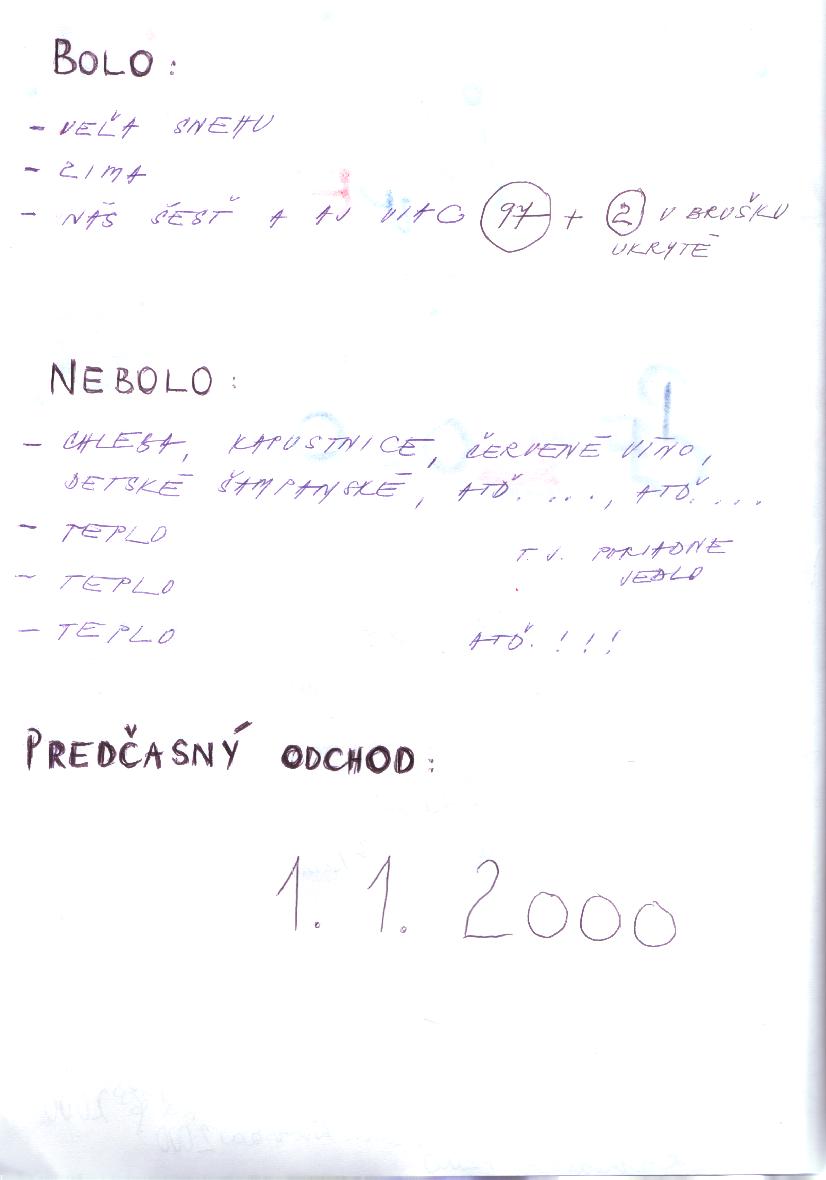 BOLO:
- VEĽA SNEHU
- ZIMA
- NÁŠ ŠESŤ A AJ VIAC 97 + 2 V BRUŠKU
UKRYTÉ
NEBOLO:
- CHLEBA, KAPUSTNICE, ČERVENÉ VÍNO,
DETSKÉ ŠAMPANSKÉ, ATĎ. ..., ATĎ. ...
- TEPLO
T.J. PORIADNE
JEDLO
- TEPLO
- TEPLO
ATĎ. !!!
PREDČASNÝ ODCHOD:
1. 1. 2000